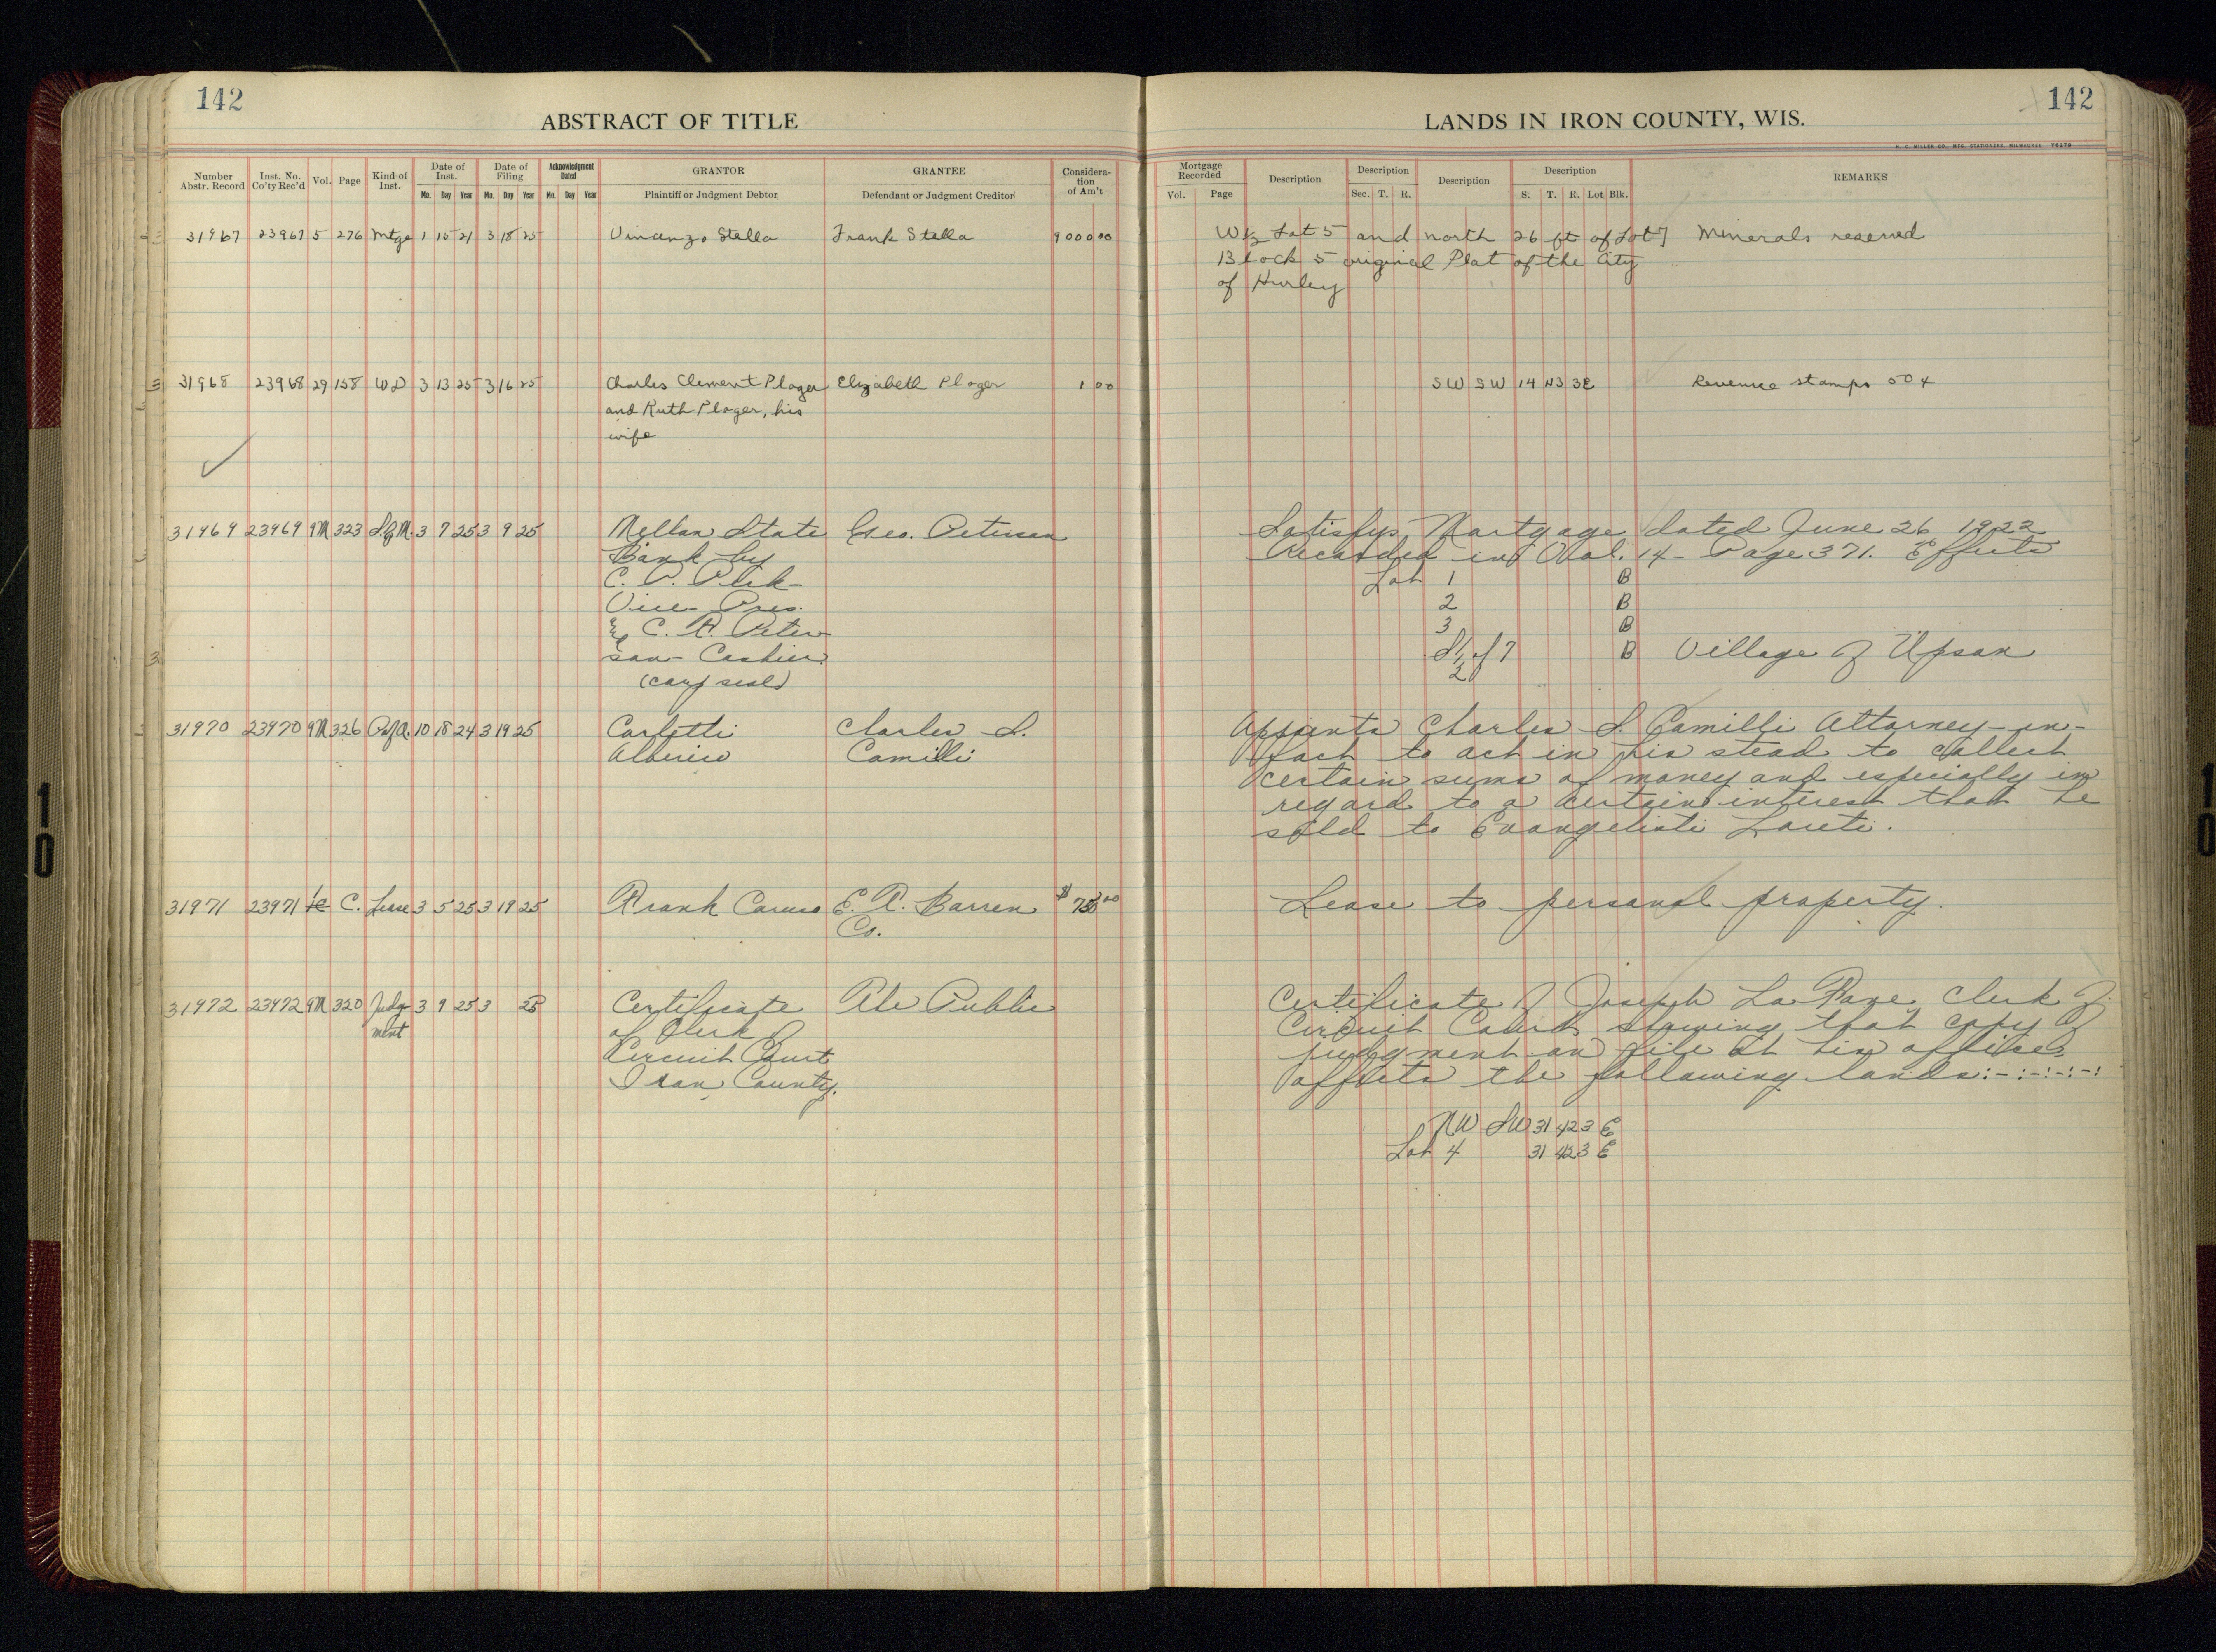 142
ABSTRACT OF TITLE
Number Abstr. Record
Inst. No. Co'ty Rec'd
Vol.
Page
Kind of Inst.
Date of Inst.
Mo. Day Year
Date of Filing
Mo. Day Year
Acknowledgment Dated
Mo. Day Year
GRANTOR
Plaintiff or Judgment Debtor
GRANTEE
Defendant or Judgment Creditor
Consideration of Am't
31967 23967 5 276 Mtge 1 15 21 3 18 25 Vincenzo Stella Frank Stella 9000 00
31968 23968 29 158 WD 3 13 25 3 16 25 Charles Clement Plager Elizabeth Plager 1 00
and Ruth Plager, his
wife
31969 23969 9M 323 S.of M. 3 7 25 3 9 25 Mellen State Geo. Peterson
Bank by
C. P.
Vice Pres.
& C. A. Peter-
son - Cashier
(corp seal)
31970 23970 9M 326 P.of A. 10 18 24 3 19 25 Carletti Charles S.
Alberico Camilli
31971 23971 C. Lease 3 5 25 3 19 25 Frank Caruso E. A. Barren $ 00
Co.
31972 23972 9M 320 Judg- 3 9 25 3 25 Certificate The Public
ment of Clerk of
Circuit Court
Iron County.
142
LANDS IN IRON COUNTY, WIS.
H. C. MILLER CO., MFG. STATIONERS, MILWAUKEE 76279
Mortgage Recorded
Vol. Page
Description
Description
Sec. T. R.
Description
Description
S. T. R. Lot Blk.
REMARKS
W½ Lot 5 and north 26 ft of Lot 7 Minerals reserved
Block 5 original Plat of the City
of Hurley
SW SW 14 43 3E Revenue stamps 50¢
Satisfys Mortgage dated June 26 1922
Recorded in Vol. 14 - Page 371. Effects
Lot 1 B
2 B
3 B
S½ of 7 B Village of Upson
Appoints Charles S. Camilli Attorney-in-
fact to act in his stead to collect
certain sums of money and especially in
regard to a certain interest that he
sold to Evangelisti Loreti.
Lease to personal property.
Certificate of Joseph La Fave Clerk of
Circuit Court showing that copy of
judgment on file at his office
affects the following lands:-:-:-:-:
NW SW 31 42 3 E
Lot 4 31 42 3 E
10
10